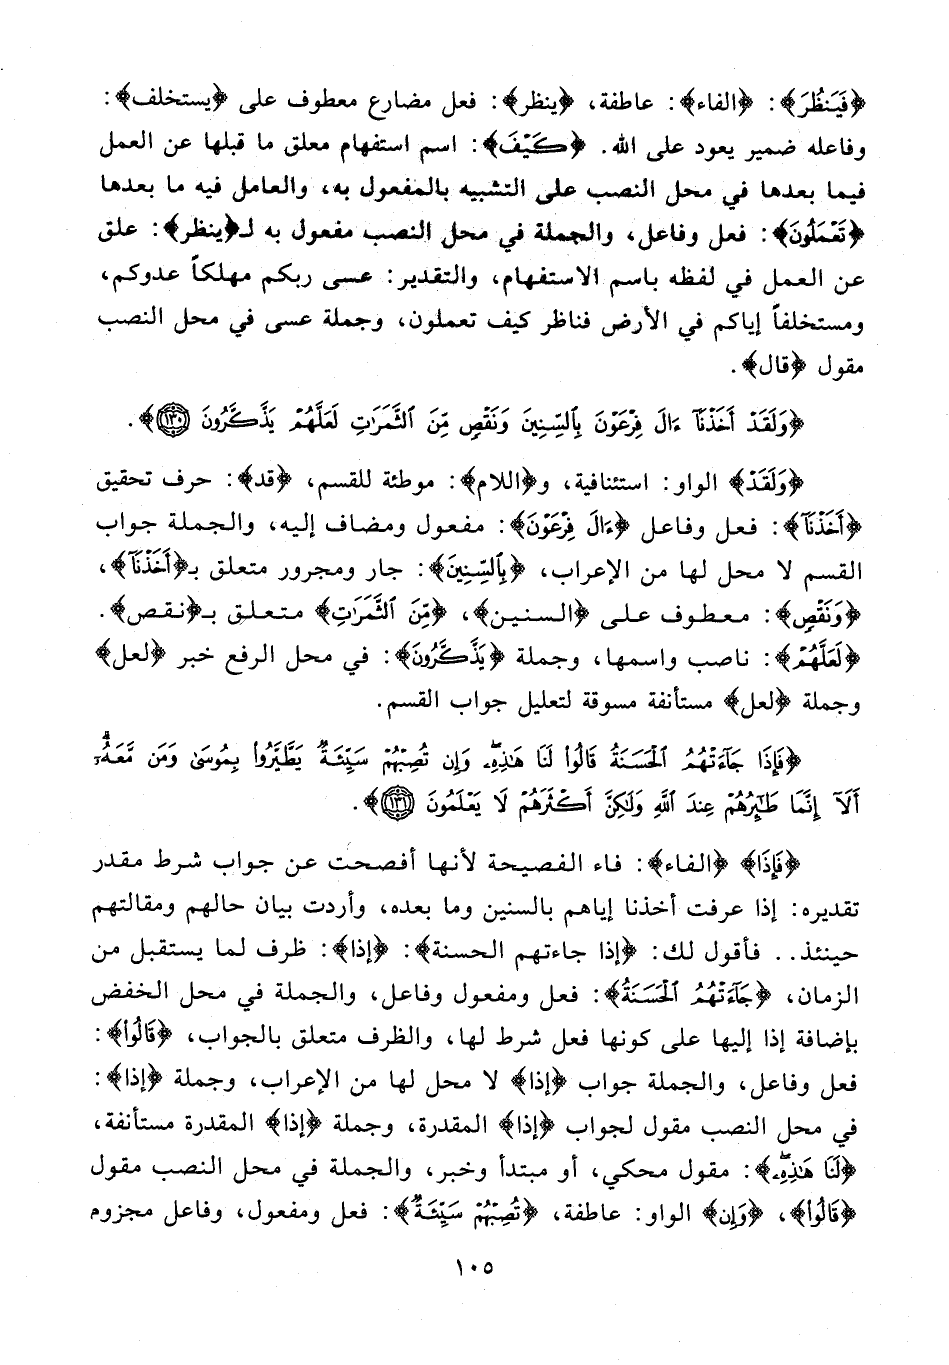 ﴿فَيَنظُرَ﴾: ﴿الفاء﴾: عاطفة، ﴿ينظر﴾: فعل مضارع معطوف على ﴿يستخلف﴾:
وفاعله ضمير يعود على الله. ﴿كَيْفَ﴾: اسم استفهام معلق ما قبلها عن العمل
فيما بعدها في محل النصب على التشبيه بالمفعول به، والعامل فيه ما بعدها
﴿تَعْمَلُونَ﴾: فعل وفاعل، والجملة في محل النصب مفعول به لـ﴿ينظر﴾: علق
عن العمل في لفظه باسم الاستفهام، والتقدير: عسى ربكم مهلكاً عدوكم،
ومستخلفاً إياكم في الأرض فناظر كيف تعملون، وجملة عسى في محل النصب
مقول ﴿قال﴾.
﴿وَلَقَدْ أَخَذْنَآ ءَالَ فِرْعَوْنَ بِٱلسِّنِينَ وَنَقْصٍ مِّنَ ٱلثَّمَرَٰتِ لَعَلَّهُمْ يَذَّكَّرُونَ ١٣٠﴾.
﴿وَلَقَدْ﴾ الواو: استئنافية، و﴿اللام﴾: موطئة للقسم، ﴿قد﴾: حرف تحقيق
﴿أَخَذْنَآ﴾: فعل وفاعل ﴿ءَالَ فِرْعَوْنَ﴾: مفعول ومضاف إليه، والجملة جواب
القسم لا محل لها من الإعراب، ﴿بِٱلسِّنِينَ﴾: جار ومجرور متعلق بـ﴿أَخَذْنَآ﴾،
﴿وَنَقْصٍ﴾: معطوف على ﴿السنين﴾، ﴿مِّنَ ٱلثَّمَرَٰتِ﴾ متعلق بـ﴿نقص﴾.
﴿لَعَلَّهُمْ﴾: ناصب واسمها، وجملة ﴿يَذَّكَّرُونَ﴾: في محل الرفع خبر ﴿لعل﴾
وجملة ﴿لعل﴾ مستأنفة مسوقة لتعليل جواب القسم.
﴿فَإِذَا جَآءَتْهُمُ ٱلْحَسَنَةُ قَالُوا۟ لَنَا هَٰذِهِۦ وَإِن تُصِبْهُمْ سَيِّئَةٌ يَطَّيَّرُوا۟ بِمُوسَىٰ وَمَن مَّعَهُۥٓ
أَلَآ إِنَّمَا طَٰٓئِرُهُمْ عِندَ ٱللَّهِ وَلَٰكِنَّ أَكْثَرَهُمْ لَا يَعْلَمُونَ ١٣١﴾.
﴿فَإِذَا﴾ ﴿الفاء﴾: فاء الفصيحة لأنها أفصحت عن جواب شرط مقدر
تقديره: إذا عرفت أخذنا إياهم بالسنين وما بعده، وأردت بيان حالهم ومقالتهم
حينئذ.. فأقول لك: ﴿إذا جاءتهم الحسنة﴾: ﴿إذا﴾: ظرف لما يستقبل من
الزمان، ﴿جَآءَتْهُمُ ٱلْحَسَنَةُ﴾: فعل ومفعول وفاعل، والجملة في محل الخفض
بإضافة إذا إليها على كونها فعل شرط لها، والظرف متعلق بالجواب، ﴿قَالُوا۟﴾:
فعل وفاعل، والجملة جواب ﴿إذا﴾ لا محل لها من الإعراب، وجملة ﴿إذا﴾:
في محل النصب مقول لجواب ﴿إذا﴾ المقدرة، وجملة ﴿إذا﴾ المقدرة مستأنفة،
﴿لَنَا هَٰذِهِۦ﴾: مقول محكي، أو مبتدأ وخبر، والجملة في محل النصب مقول
﴿قَالُوا۟﴾، ﴿وَإِن﴾ الواو: عاطفة، ﴿تُصِبْهُمْ سَيِّئَةٌ﴾: فعل ومفعول، وفاعل مجزوم
١٠٥